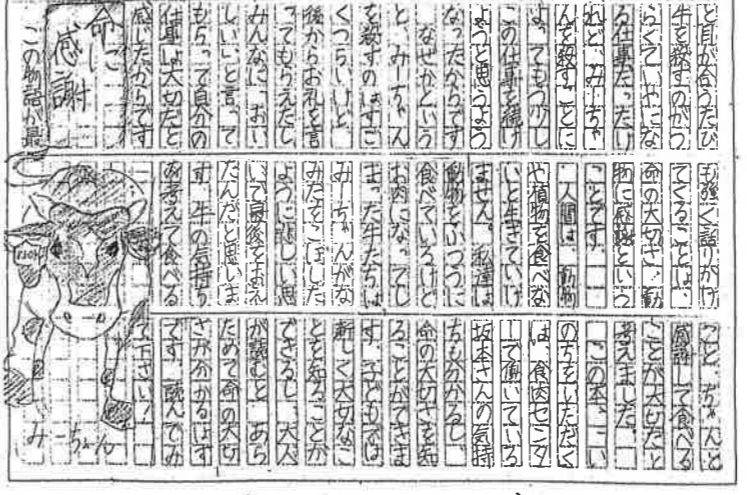 と目が合うたび
牛を殺すのがつ
らくていやにな
る仕事だったけ
れど、みーちゃ
んを殺すことに
よってもう少し
この仕事を続け
ようと思うよう
なったからです
なぜかという
と、みーちゃん
を殺すのはすご
くつらいけど、
後からお礼を言
ってもらえたし
みんなに、おい
しいと言って
もらって自分の
仕事は大切だと
感じたからです
命に
感謝
この物語が最
も強く語りかけ
てくることは、
命の大切さ、動
物に感謝という
ことです。
人間は、動物
や植物を食べな
いと生きていけ
ません。私達は
動物をふつうに
食べているけど
お肉になってし
まった牛たちは
みーちゃんがな
みだをこぼした
ように悲しい思
いで最後をむかえ
たんだと思いま
す。牛の気持ち
を考えて食べる
こと、ちゃんと
感謝して食べる
ことが大切だと
考えました。
この本、「い
のちをいただく」
は、食肉センタ
ーで働いている
坂本さんの気持
ちも分かるし、
命の大切さを知
ることができま
す。子どもでは
新しく大切なこ
とを知ることが
できるし、大人
が読むと、あら
ためて命の大切
さが分かるはず
です。読んでみ
て下さい！
みーちゃん